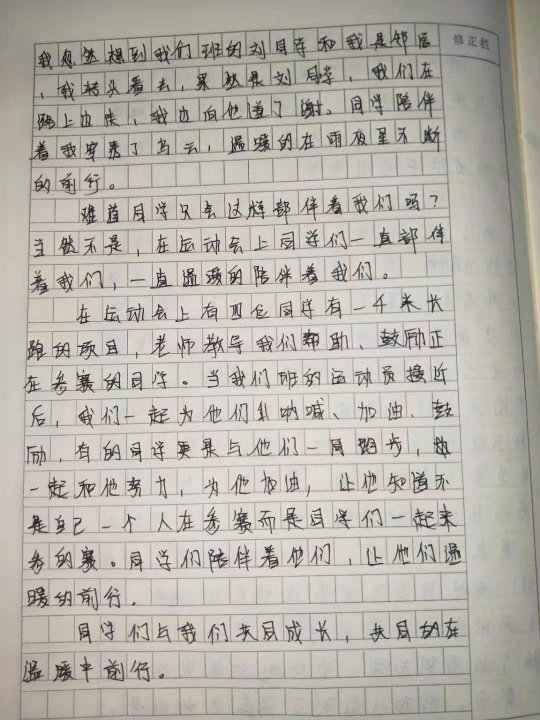 修正栏
我忽然想到我们班的刘同学和我是邻居
，我转头看去，果然是刘同学，我们在
路上边走，我边向他道了谢。同学陪伴
着我穿乘了乌云，温暖的在雨夜里不断
的前行。
难道同学只会这样都伴着我们吗？
当然不是，在运动会上同学们一直都伴
着我们，一直温暖的陪伴着我们。
在运动会上有四位同学有一千米长
跑的项目，老师教导我们帮助、鼓励正
在参赛的同学。当我们班的运动员接近
后，我们一起为他们呐喊、加油、鼓
励，有的同学更是与他们一同跑步，
一起和他努力，为他加油，让他知道不
是自己一个人在参赛而是同学们一起来
参的赛。同学们陪伴着他们，让他们温
暖的前行。
同学们与我们共同成长，共同的在
温暖中前行。